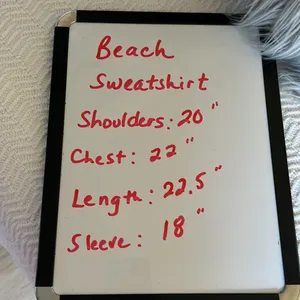 Beach
Sweatshirt
Shoulders: 20"
Chest: 22"
Length: 22.5"
Sleeve: 18"